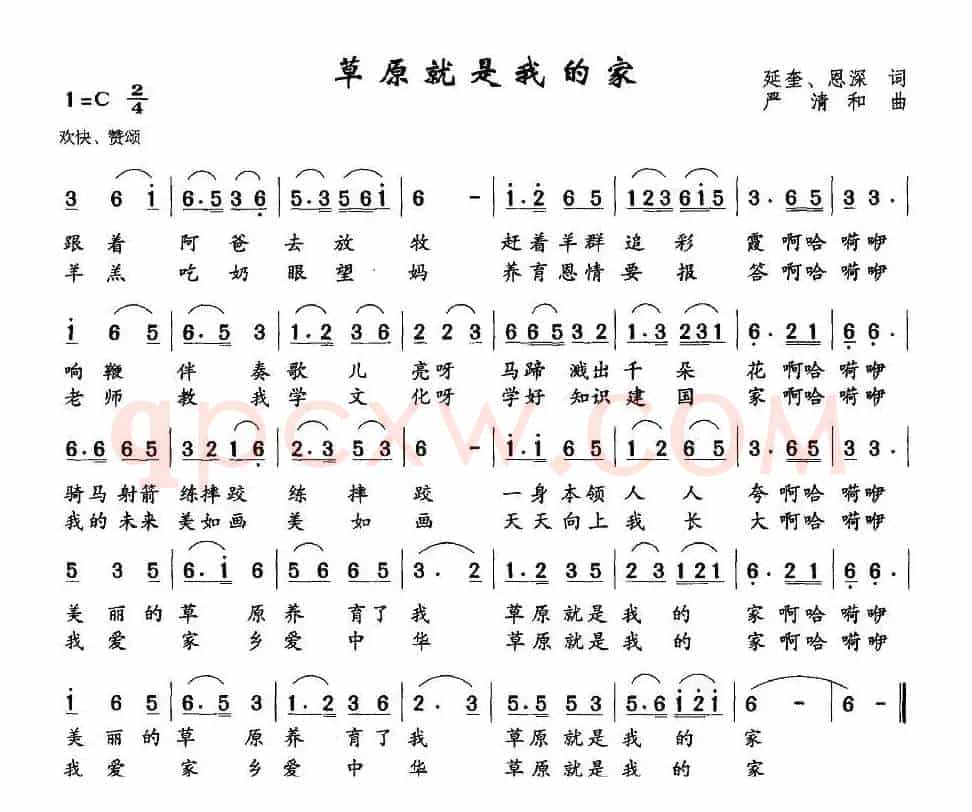 草原就是我的家
1=C 2/4
延奎、恩深 词
严 清 和 曲
欢快、赞颂
3 6 i | 6.5 3 6 | 5.3 5 6 i | 6 - | i.2 6 5 | 1 2 3 6 i 5 | 3.6 5 | 3 3. |
跟着 阿爸去放牧 赶着羊群追彩霞啊哈嗬咿
羊羔 吃奶眼望妈 养育恩情要报答啊哈嗬咿
i 6 5 | 6.5 3 | 1.2 3 6 | 2 2 3 | 6 6 5 3 2 | 1.3 2 3 1 | 6.2 1 | 6 6. |
响鞭伴奏歌儿亮呀 马蹄溅出千朵花啊哈嗬咿
老师教我学文化呀 学好知识建国家啊哈嗬咿
6.6 6 5 | 3 2 1 6 | 2.3 5 3 | 6 - | i.i 6 5 | 1 2 6 5 | 3.6 5 | 3 3. |
骑马射箭练摔跤练摔跤 一身本领人人夸啊哈嗬咿
我的未来美如画美如画 天天向上我长大啊哈嗬咿
5 3 5 | 6.i 6 | 5 6 6 5 | 3. 2 | 1.2 3 5 | 2 3 1 2 1 | 6.2 1 | 6 6. |
美丽的草原养育了我 草原就是我的家啊哈嗬咿
我爱家乡爱中华 草原就是我的家啊哈嗬咿
i 6 5 | 6.5 3 | 1.2 3 6 | 2. 3 | 5.5 5 3 | 5.6 i 2 i | 6 - | 6 - ‖
美丽的草原养育了我 草原就是我的家
我爱家乡爱中华 草原就是我的家
qpcxw.COM